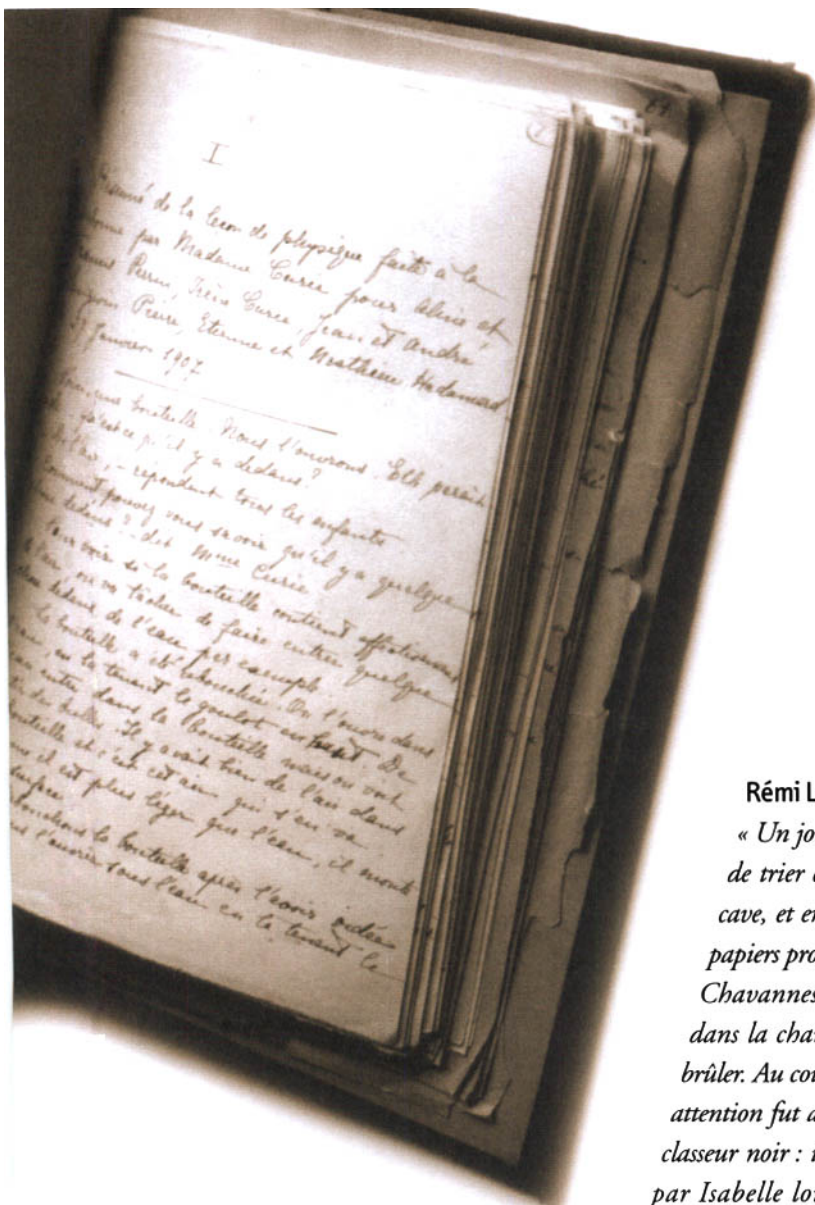 I
de la leçon de physique faite à la
par Madame Curie pour Aline et
Francis Perrin, Irène Curie, Jean et André
Pierre, Etienne et Mathieu Hadamard
27 Janvier 1907
une bouteille. Nous l'ouvrons. Elle paraît
Qu'est ce qu'il y a dedans ?
De l'air, – répondent tous les enfants
Comment pouvez vous savoir qu'il y a quelque
dedans ? dit Mme Curie
Pour voir si la bouteille contient effectivement
l'air on va tâcher de faire entrer quelque
chose dedans de l'eau par exemple
La bouteille a été bouchée. On l'ouvre dans
l'eau, en la tenant le goulot en haut De
l'eau entre dans la bouteille mais on voit
des bulles. Il y avait bien de l'air dans
bouteille et c'est cet air qui s'en va
il est plus léger que l'eau, il monte
surface.
la bouteille après l'avoir vidée
l'ouvrir sous l'eau en la tenant le
Rémi L
« Un jo
de trier
cave, et en
papiers pro
Chavannes
dans la cha
brûler. Au cou
attention fut a
classeur noir :
par Isabelle lor